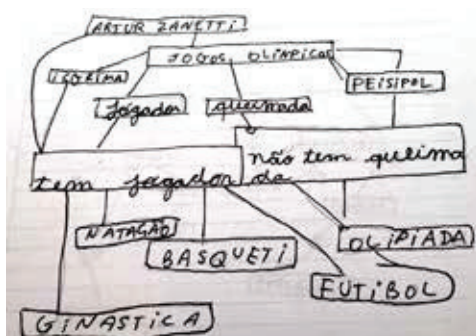 ARTUR ZANETTI
JOGOS OLINPICOS
ISQRIMA
PEISIPOL
jogador
queimada
não tem queima
tem jagador da
NATAGÃO
BASQUETI
OLIPIADA
FUTIBOL
GINASTICA